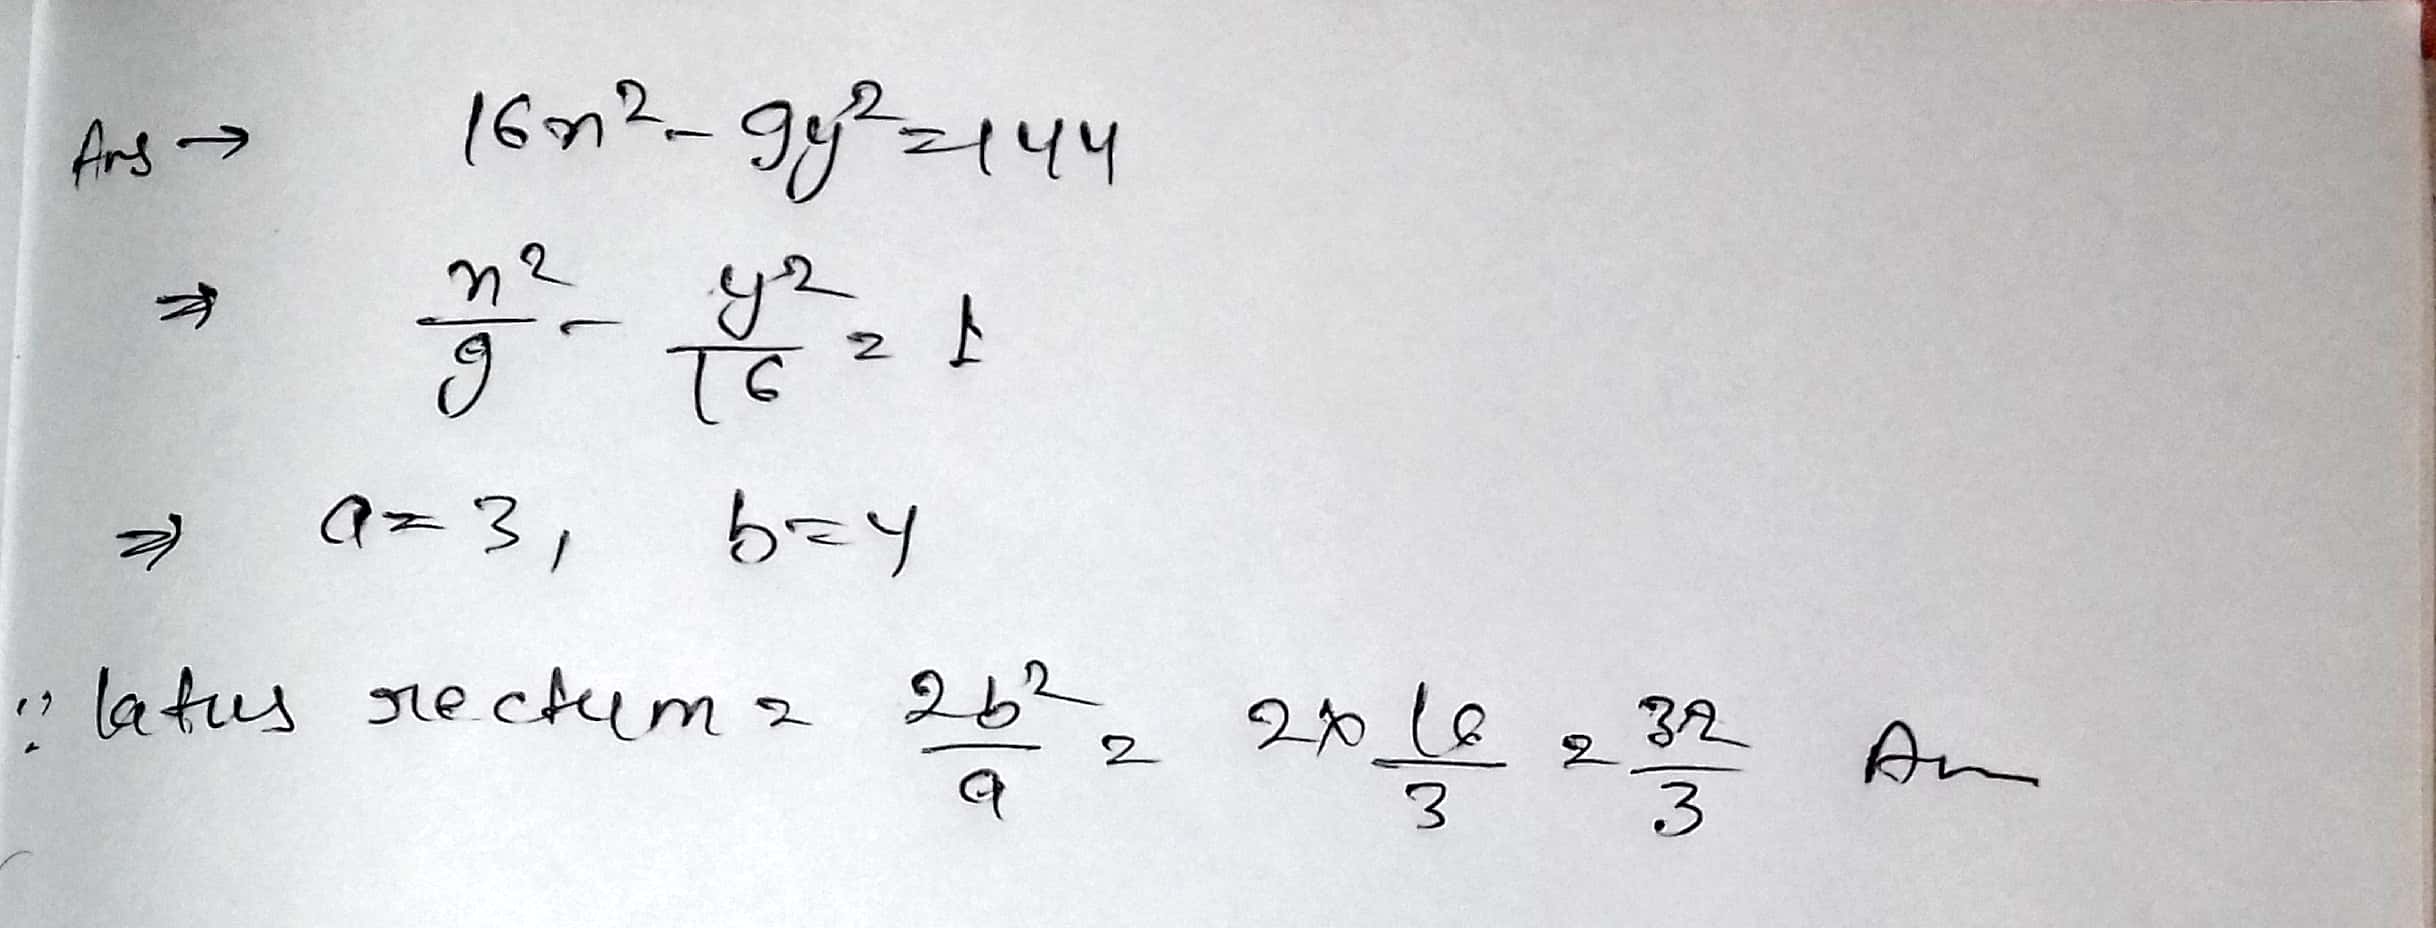 Ans → 16x² - 9y² = 144
⇒ x²/9 - y²/16 = 1
⇒ a = 3, b = 4
∵ latus rectum = 2b²/a = 2×16/3 = 32/3 An